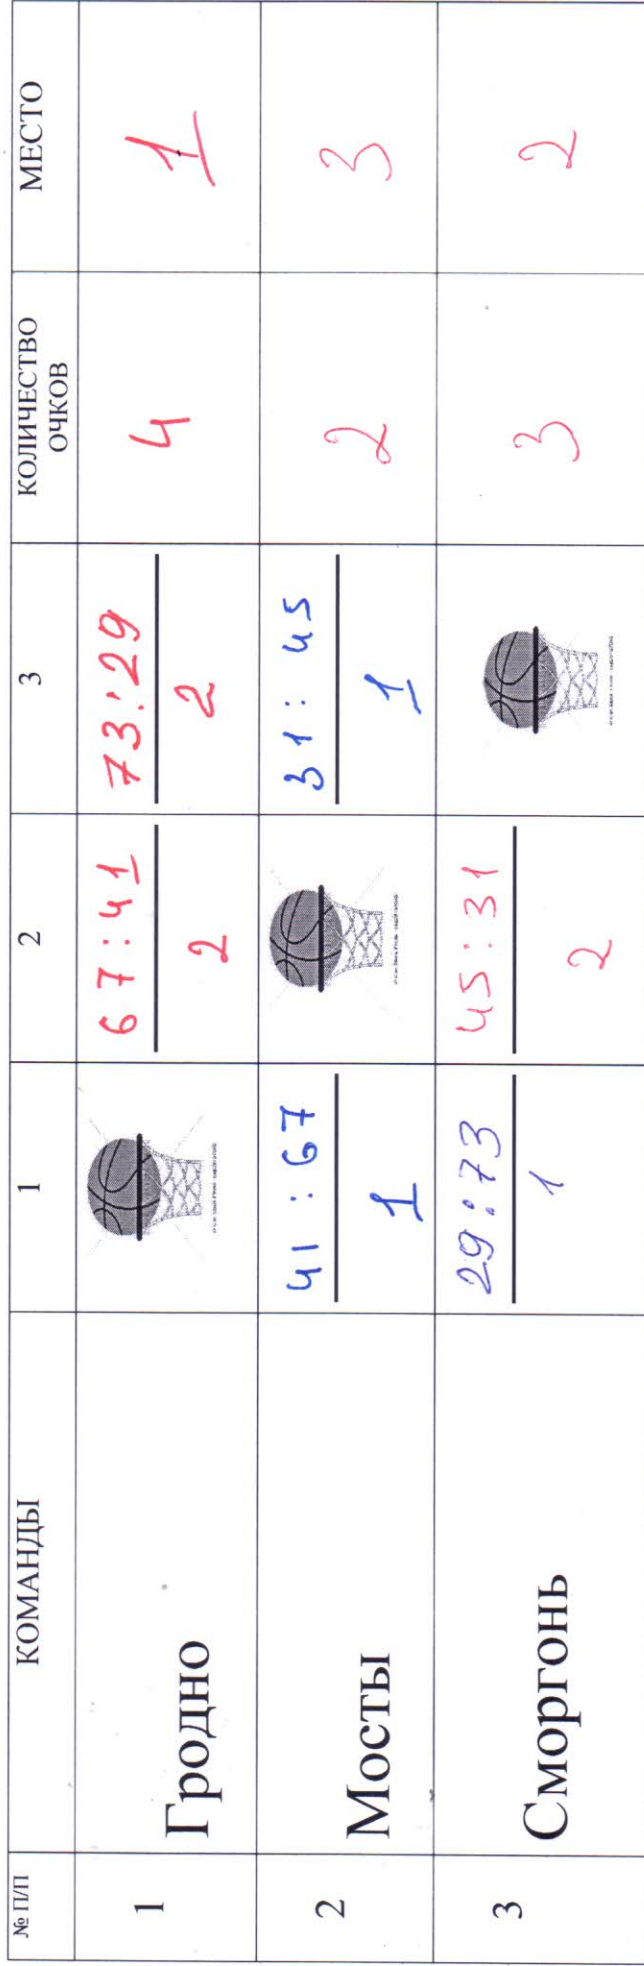 № П/П КОМАНДЫ 1 2 3 КОЛИЧЕСТВО ОЧКОВ МЕСТО
1 Гродно 67:41 73:29 4 1
2 2
2 Мосты 41:67 31:45 2 3
1 1
3 Сморгонь 29:73 45:31 3 2
1 2